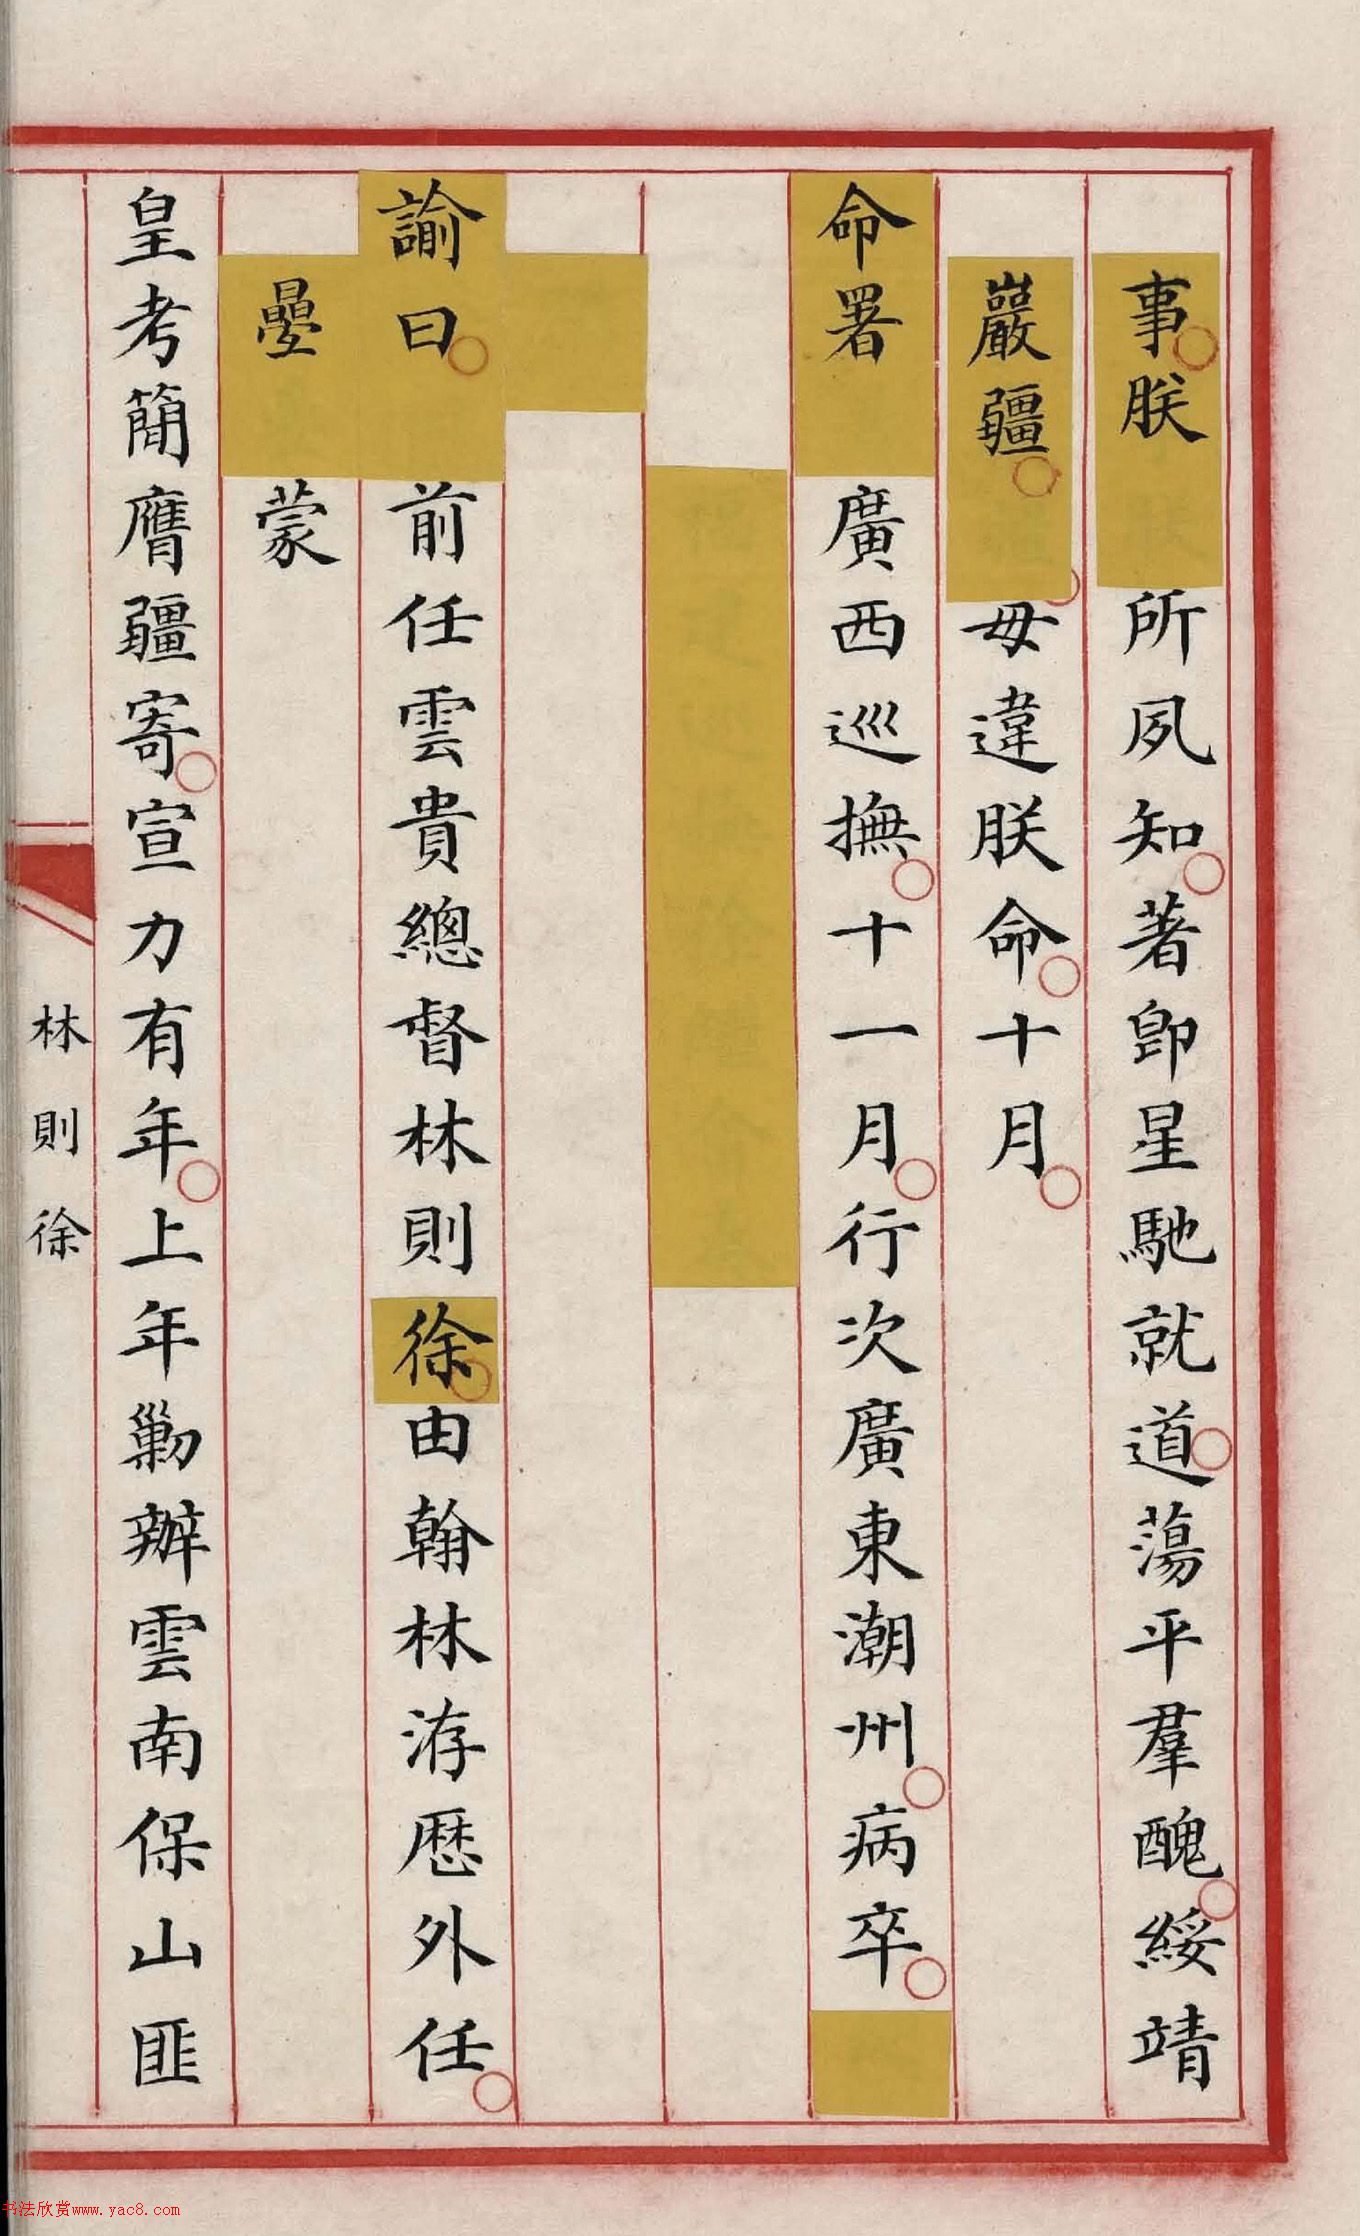 事朕所夙知著卽星馳就道蕩平羣醜綏靖
巖疆毋違朕命十月
命署廣西巡撫十一月行次廣東潮州病卒
諭曰前任雲貴總督林則徐由翰林洊歷外任
疊蒙
皇考簡膺疆寄宣力有年上年勦辦雲南保山匪
林則徐
书法欣赏www.yac8.com